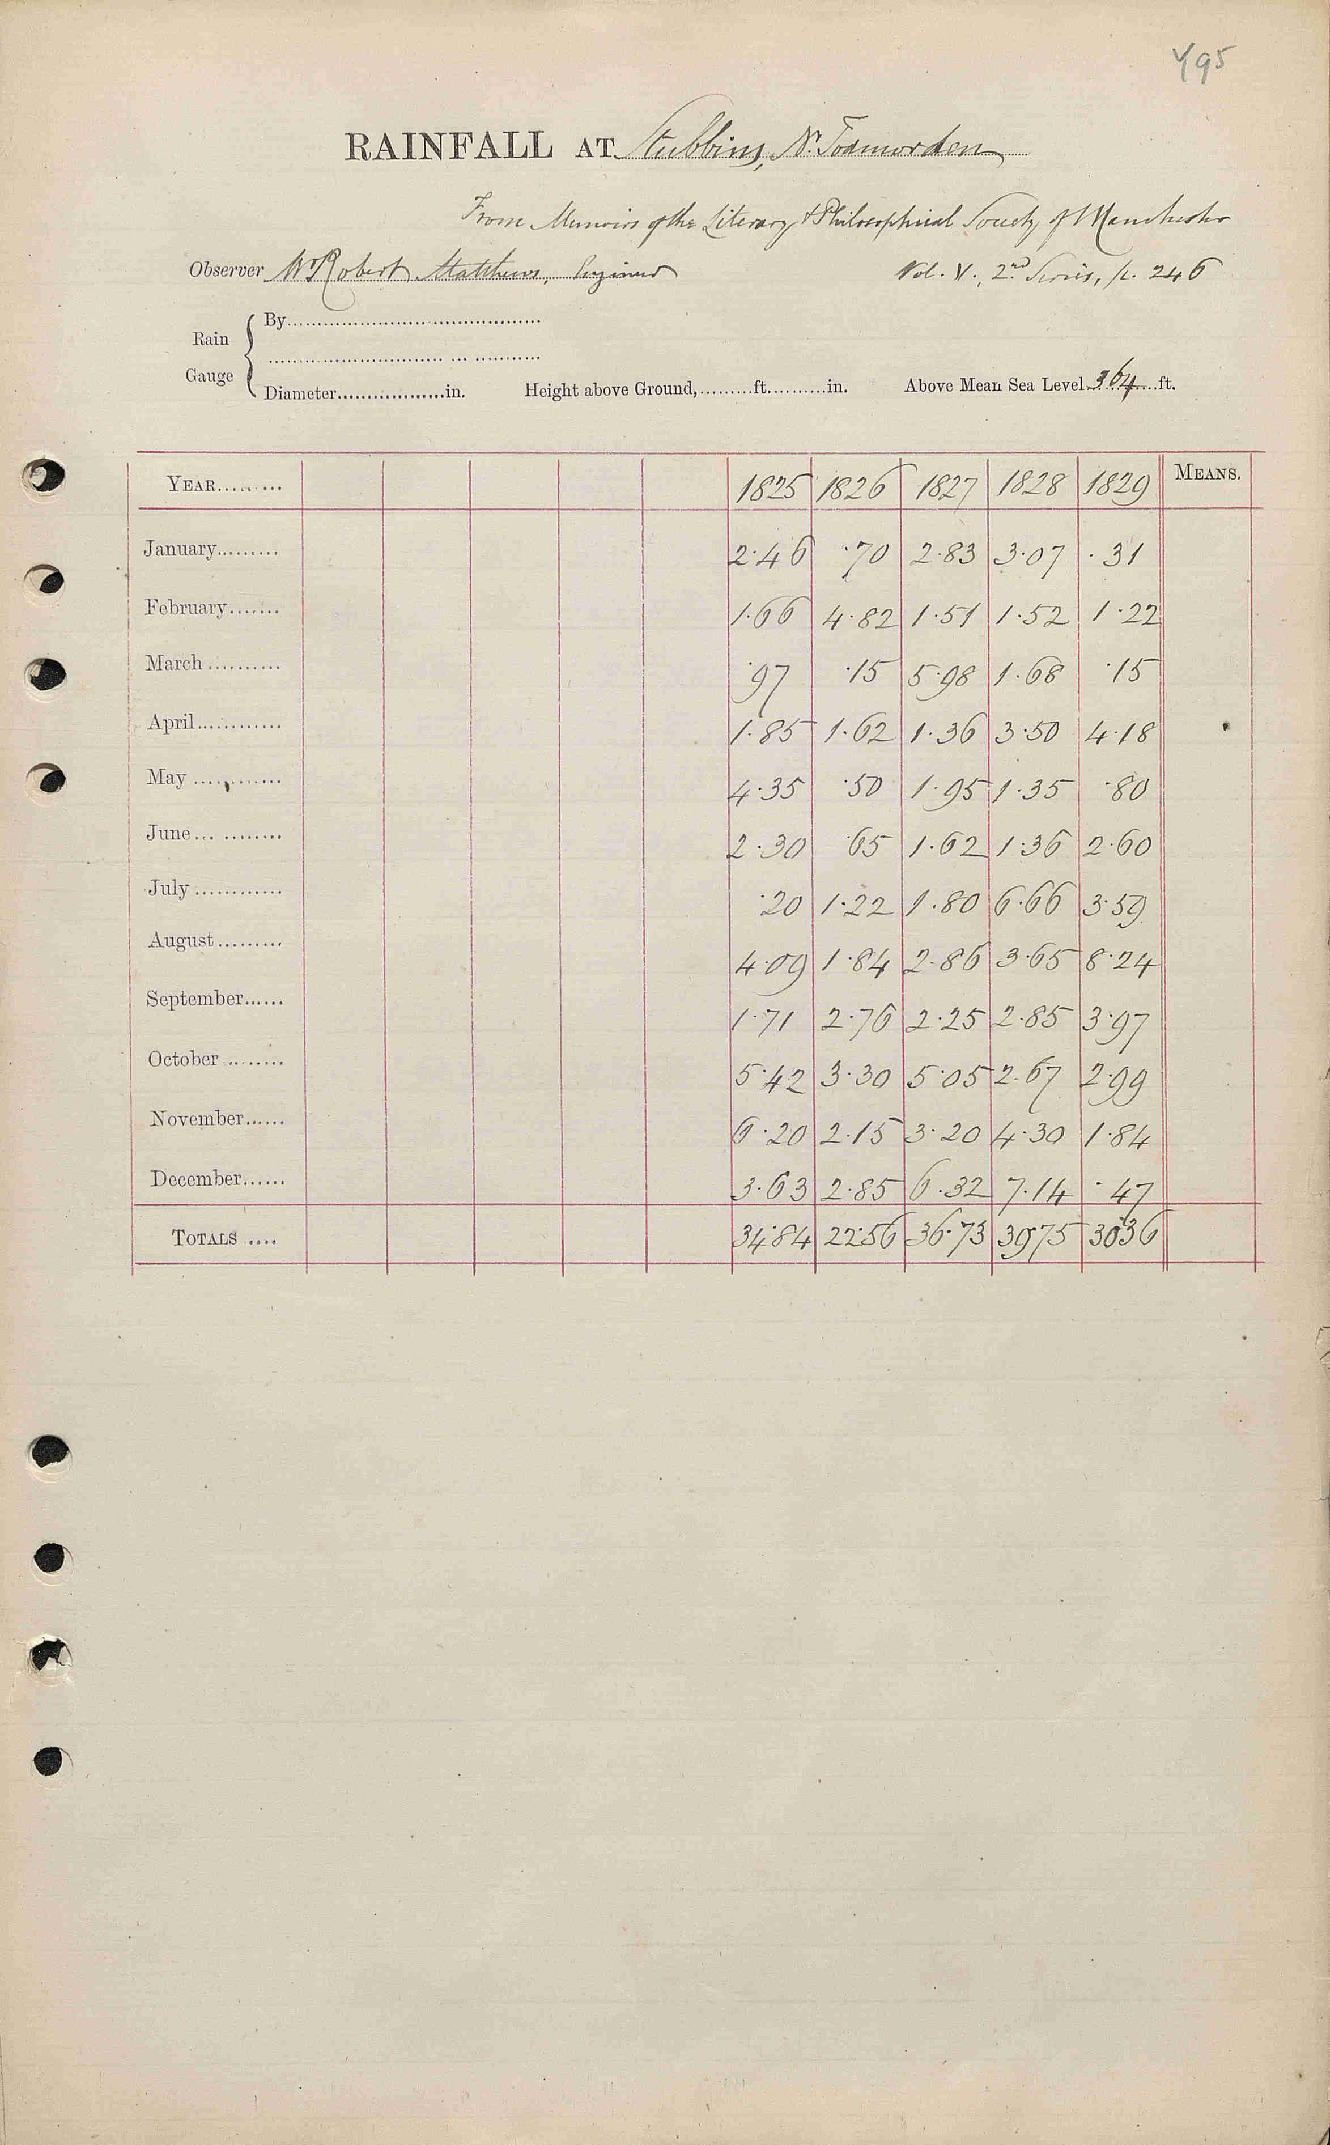 495
RAINFALL AT Stubbins, Nr. Todmorden
From Memoirs of the Literary & Philosophical Society of Manchester
Observer Mr Robert Matthews, Engineer Vol. V., 2nd Series, p. 246
Rain Gauge { By
Diameter in. Height above Ground, ft. in. Above Mean Sea Level 364 ft.
YEAR 1825 1826 1827 1828 1829 MEANS.
January 2.46 .70 2.83 3.07 .31
February 1.66 4.82 1.51 1.52 1.22
March .97 .15 5.98 1.68 .15
April 1.85 1.62 1.36 3.50 4.18
May 4.35 .50 1.95 1.35 .80
June 2.30 .65 1.62 1.36 2.60
July .20 1.22 1.80 6.66 3.59
August 4.09 1.84 2.86 3.65 8.24
September 1.71 2.76 2.25 2.85 3.97
October 5.42 3.30 5.05 2.67 2.99
November 6.20 2.15 3.20 4.30 1.84
December 3.63 2.85 6.32 7.14 .47
TOTALS 34.84 22.56 36.73 39.75 30.36